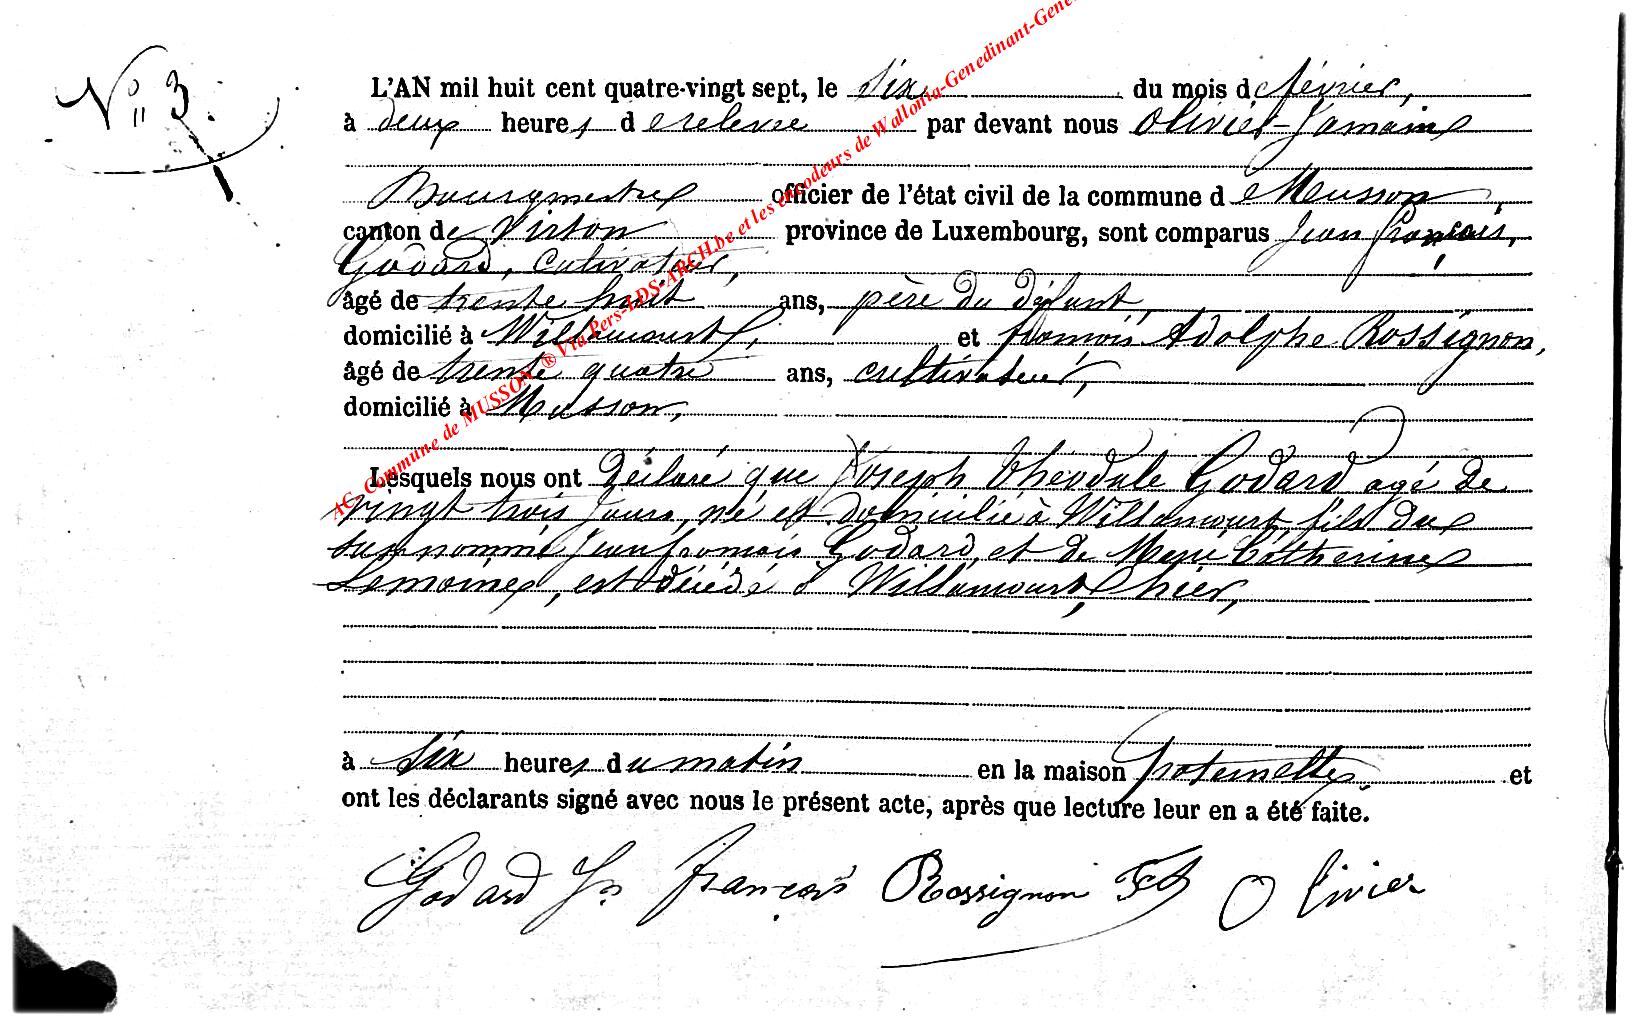 N° 3
L'AN mil huit cent quatre-vingt sept, le six du mois de février,
à deux heures de relevée par devant nous Olivier Jamain
Bourgmestre officier de l'état civil de la commune de Musson,
canton de Virton province de Luxembourg, sont comparus Jean françois,
Godard, cultivateur,
âgé de trente huit ans, père du défunt,
domicilié à Willancourt, et françois Adolphe Rossignon,
âgé de trente quatre ans, cultivateur,
domicilié à Musson,
Lesquels nous ont déclaré que Joseph Théodule Godard agé de
vingt trois jours, né et domicilié à Willancourt, fils du
surnommé Jean françois Godard, et de Marie Catherine
Lemoine, est décédé à Willancourt, hier,
à six heures du matin en la maison paternelle, et
ont les déclarants signé avec nous le présent acte, après que lecture leur en a été faite.
Godard Jn françois Rossignon Olivier
AC - Commune de MUSSON ® Via Pers-LDS-ARCH.be et les encodeurs de Wallonia-Genedinant-Gene